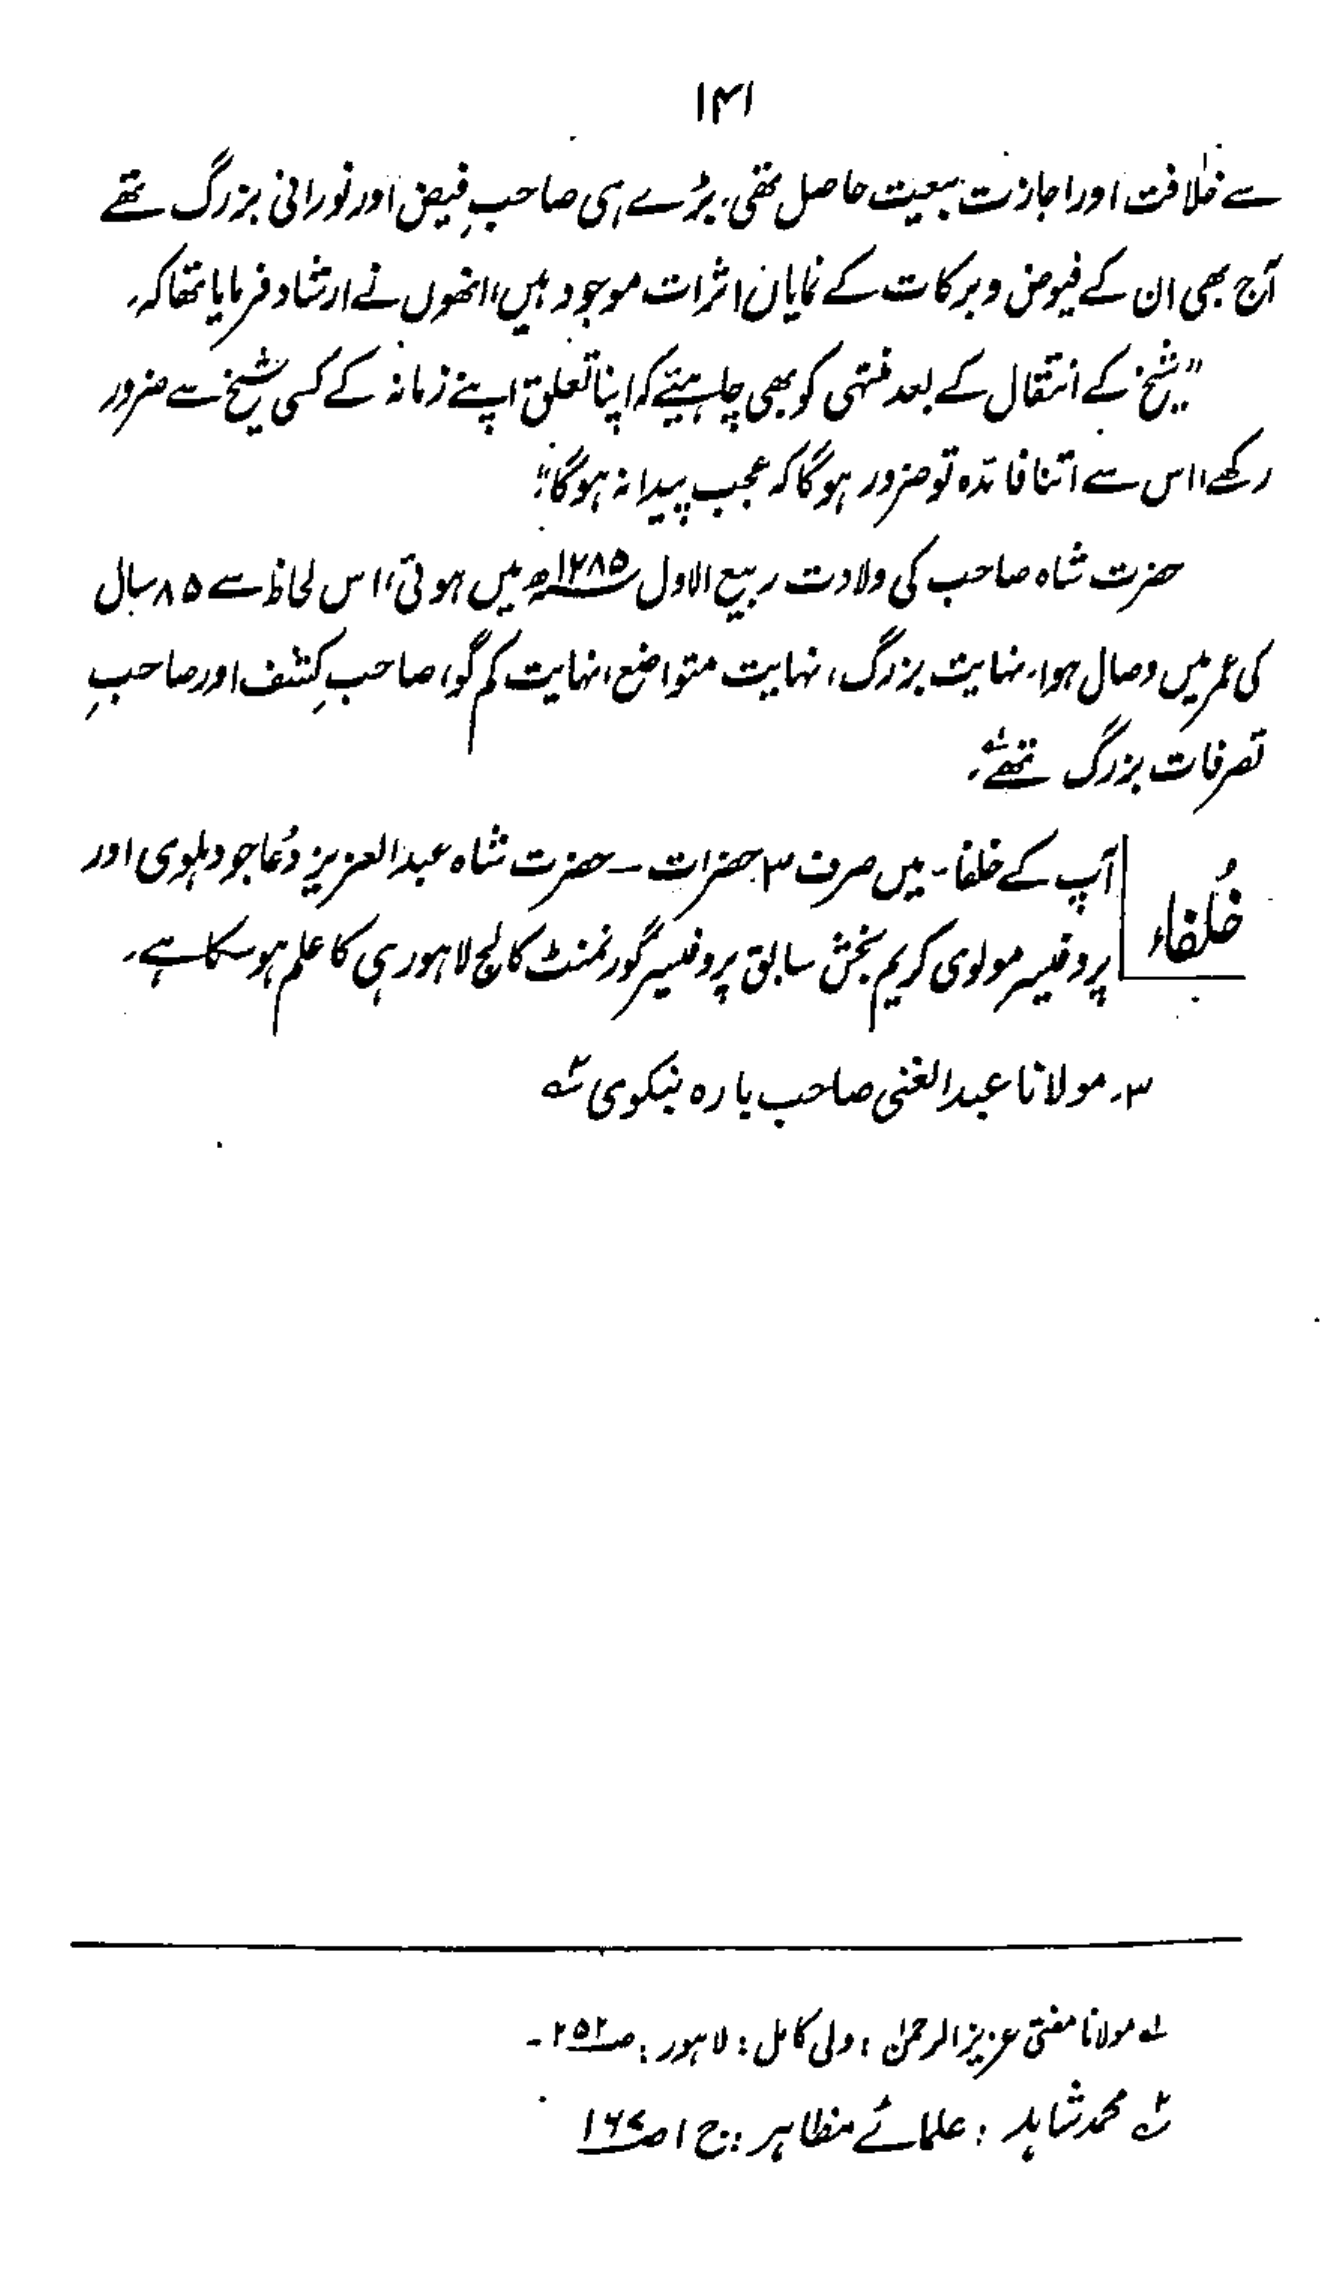 ۱۴۱
سے خلافت اور اجازت بیعت حاصل تھی۔ بڑے ہی صاحبِ فیض اور نورانی بزرگ تھے
آج بھی ان کے فیوض و برکات کے نمایاں اثرات موجود ہیں، انھوں نے ارشاد فرمایا تھا کہ۔
”شیخ کے انتقال کے بعد منتہی کو بھی چاہیئے کہ اپنا تعلق اپنے زمانہ کے کسی شیخ سے ضرور
رکھے، اس سے اتنا فائدہ تو ضرور ہوگا کہ عجب پیدا نہ ہوگا“
حضرت شاہ صاحب کی ولادت ربیع الاول ۱۲۸۵ھ میں ہوئی، اس لحاظ سے ۸۵ سال
کی عمر میں وصال ہوا۔ نہایت بزرگ، نہایت متواضع، نہایت کم گو، صاحبِ کشف اور صاحبِ
تصرفات بزرگ تھے۔ ۱؎
خُلفاء
آپ کے خلفاء میں صرف ۳ حضرات ــ حضرت شاہ عبدالعزیز دُعاجو دہلوی اور
پروفیسر مولوی کریم بخش سابق پروفیسر گورنمنٹ کالج لاہور ہی کا علم ہوسکا ہے۔
۳۔ مولانا عبدالغنی صاحب بارہ بنکوی ۲؎
۱؎ مولانا مفتی عزیز الرحمٰن : ولی کامل : لاہور : صـ ۲۵۲ -
۲؎ محمد شاہد : علمائے مظاہر : ج ۱ صـ ۱۶۷